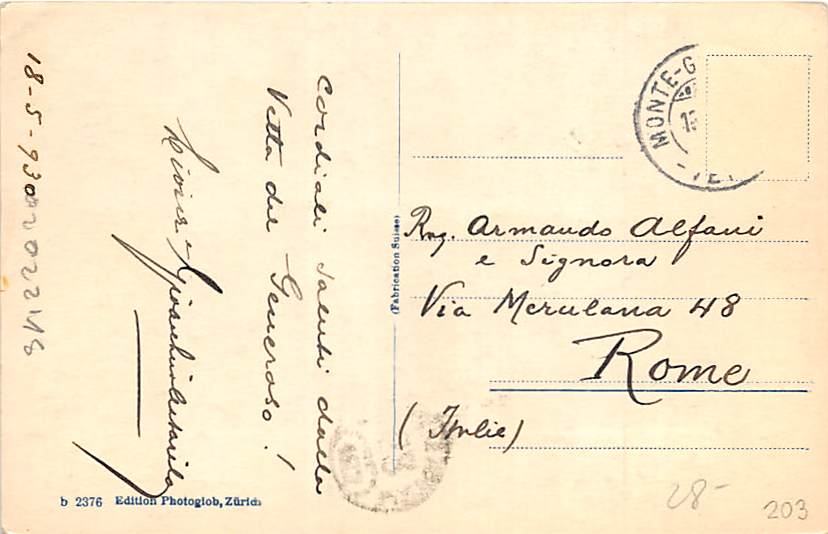 18-5-930
Cordiali saluti dalla
Vetta del Generoso!
(Fabrication Suisse)
MONTE-G
Rag. Armando Alfani
e Signora
Via Merulana 48
Rome
(Italie)
b 2376 Edition Photoglob, Zürich
28-
203